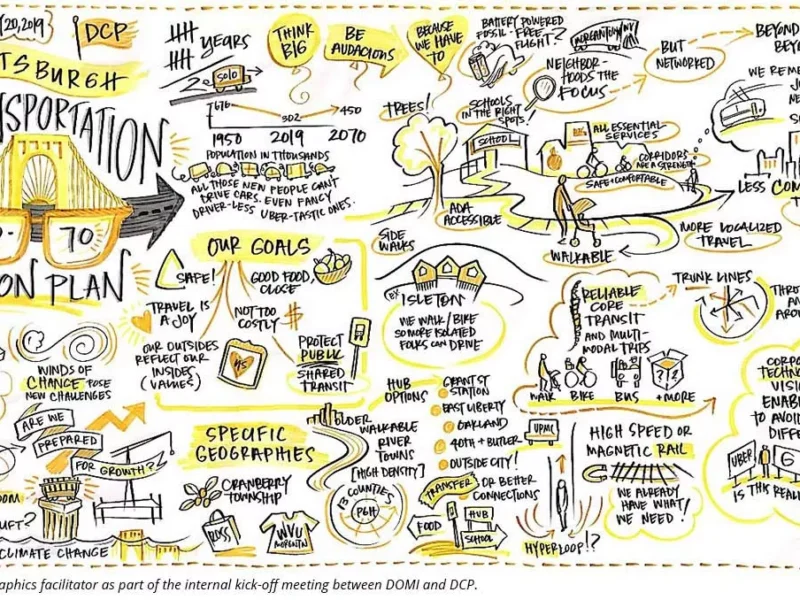 20, 2019
DCP
TSBURGH
NSPORTATION
70
ON PLAN
YEARS
SOLO
676
502
450
1950 2019 2070
POPULATION IN THOUSANDS
ALL THOSE NEW PEOPLE CAN'T
DRIVE CARS. EVEN FANCY
DRIVER-LESS UBER-TASTIC ONES.
THINK
BIG
BE
AUDACIOUS
BECAUSE
WE HAVE
TO
BATTERY POWERED
FOSSIL-FREE
FLIGHT?
MORGANTOWN/WV
NEIGHBOR-
HOODS THE
FOCUS
BUT
NETWORKED
BEYOND
BEY
WE REME
LESS COM
TREES!
SCHOOLS
IN THE RIGHT
SPOTS!
SCHOOL
ALL ESSENTIAL
SERVICES
CORRIDORS
ARE A STRENGTH
SAFE + COMFORTABLE
ADA
ACCESSIBLE
SIDE
WALKS
WALKABLE
MORE LOCALIZED
TRAVEL
OUR GOALS
SAFE!
GOOD FOOD,
CLOSE
TRAVEL IS
A JOY
NOT TOO
COSTLY $
OUR OUTSIDES
REFLECT OUR
INSIDES
(VALUES)
PROTECT
PUBLIC
SHARED
TRANSIT
ISLETON
WE WALK/BIKE
SO MORE ISOLATED
FOLKS CAN DRIVE
RELIABLE
CORE
TRANSIT
AND MULTI-
MODAL TRIPS
WALK BIKE BUS + MORE
TRUNK LINES
THRO
AN
AROU
WINDS OF
CHANGE POSE
NEW CHALLENGES
ARE WE
PREPARED
FOR GROWTH?
CLIMATE CHANGE
SPECIFIC
GEOGRAPHIES
CRANBERRY
TOWNSHIP
ROSS
WVU
OLDER
WALKABLE
RIVER
TOWNS
[HIGH DENSITY]
13 COUNTIES
PGH
HUB
OPTIONS
GRANT ST
STATION
EAST LIBERTY
OAKLAND
40TH + BUTLER
OUTSIDE CITY!
TRANSFER OR BETTER
CONNECTIONS
FOOD
HUB
SCHOOL
UPMC
HYPERLOOP!?
HIGH SPEED OR
MAGNETIC RAIL
WE ALREADY
HAVE WHAT
WE NEED!
CORPO
TECHNO
VISI
ENAB
TO AVOI
DIFFE
UBER
G
IS THIS REAL
aphics facilitator as part of the internal kick-off meeting between DOMI and DCP.